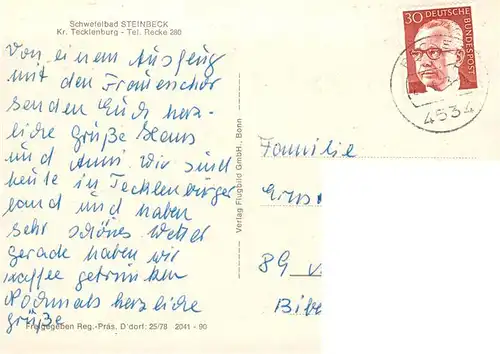 Schwefelbad STEINBECK
Kr. Tecklenburg - Tel. Recke 280
Von einem Ausflug
mit den Frauenchor
senden Euch herz-
liche Grüße Hans
und Anni. Wir sind
heute in Tecklenburger
land und haben
sehr schönes Wetter
gerade haben wir
Kaffee getrunken
Nochmals herzliche
Grüße
Freigegeben Reg.-Präs. D'dorf: 25/78 2041 - 90
Verlag Flugbild GmbH., Bonn
30 DEUTSCHE BUNDESPOST
4534
Familie
89
Bibe